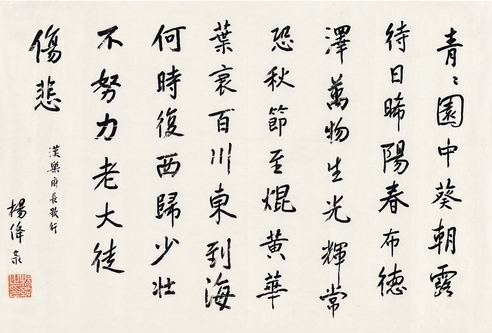 青〻園中葵朝露
待日晞陽春布德
澤萬物生光輝常
恐秋節至焜黃華
葉衰百川東到海
何時復西歸少壯
不努力老大徒
傷悲
漢樂府長歌行
楊絳